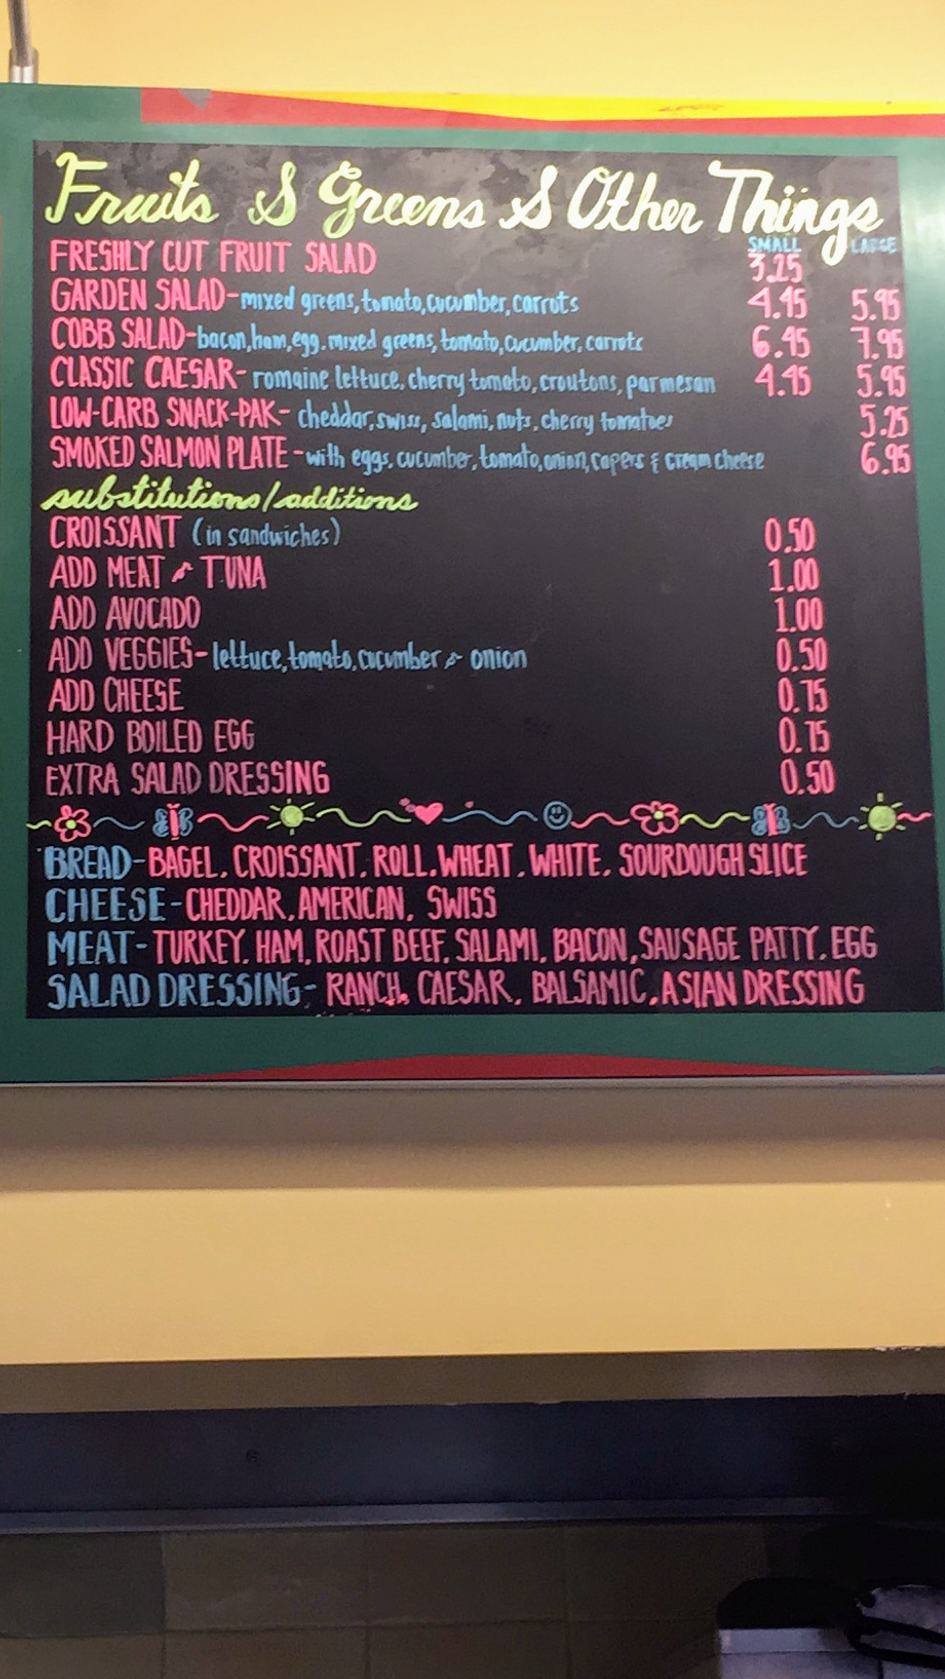 Fruits & Greens & Other Things
SMALL LARGE
FRESHLY CUT FRUIT SALAD 3.25
GARDEN SALAD-mixed greens, tomato, cucumber, carrots 4.45 5.95
COBB SALAD-bacon, ham, egg, mixed greens, tomato, cucumber, carrots 6.45 7.95
CLASSIC CAESAR- romaine lettuce, cherry tomato, croutons, parmesan 4.45 5.95
LOW-CARB SNACK-PAK- cheddar, swiss, salami, nuts, cherry tomatoes 5.25
SMOKED SALMON PLATE -with eggs, cucumber, tomato, onion, capers & cream cheese 6.95
substitutions/additions
CROISSANT (in sandwiches) 0.50
ADD MEAT or TUNA 1.00
ADD AVOCADO 1.00
ADD VEGGIES- lettuce, tomato, cucumber or onion 0.50
ADD CHEESE 0.75
HARD BOILED EGG 0.75
EXTRA SALAD DRESSING 0.50
BREAD-BAGEL, CROISSANT, ROLL, WHEAT, WHITE, SOURDOUGH SLICE
CHEESE-CHEDDAR, AMERICAN, SWISS
MEAT-TURKEY, HAM, ROAST BEEF, SALAMI, BACON, SAUSAGE PATTY, EGG
SALAD DRESSING- RANCH, CAESAR, BALSAMIC, ASIAN DRESSING